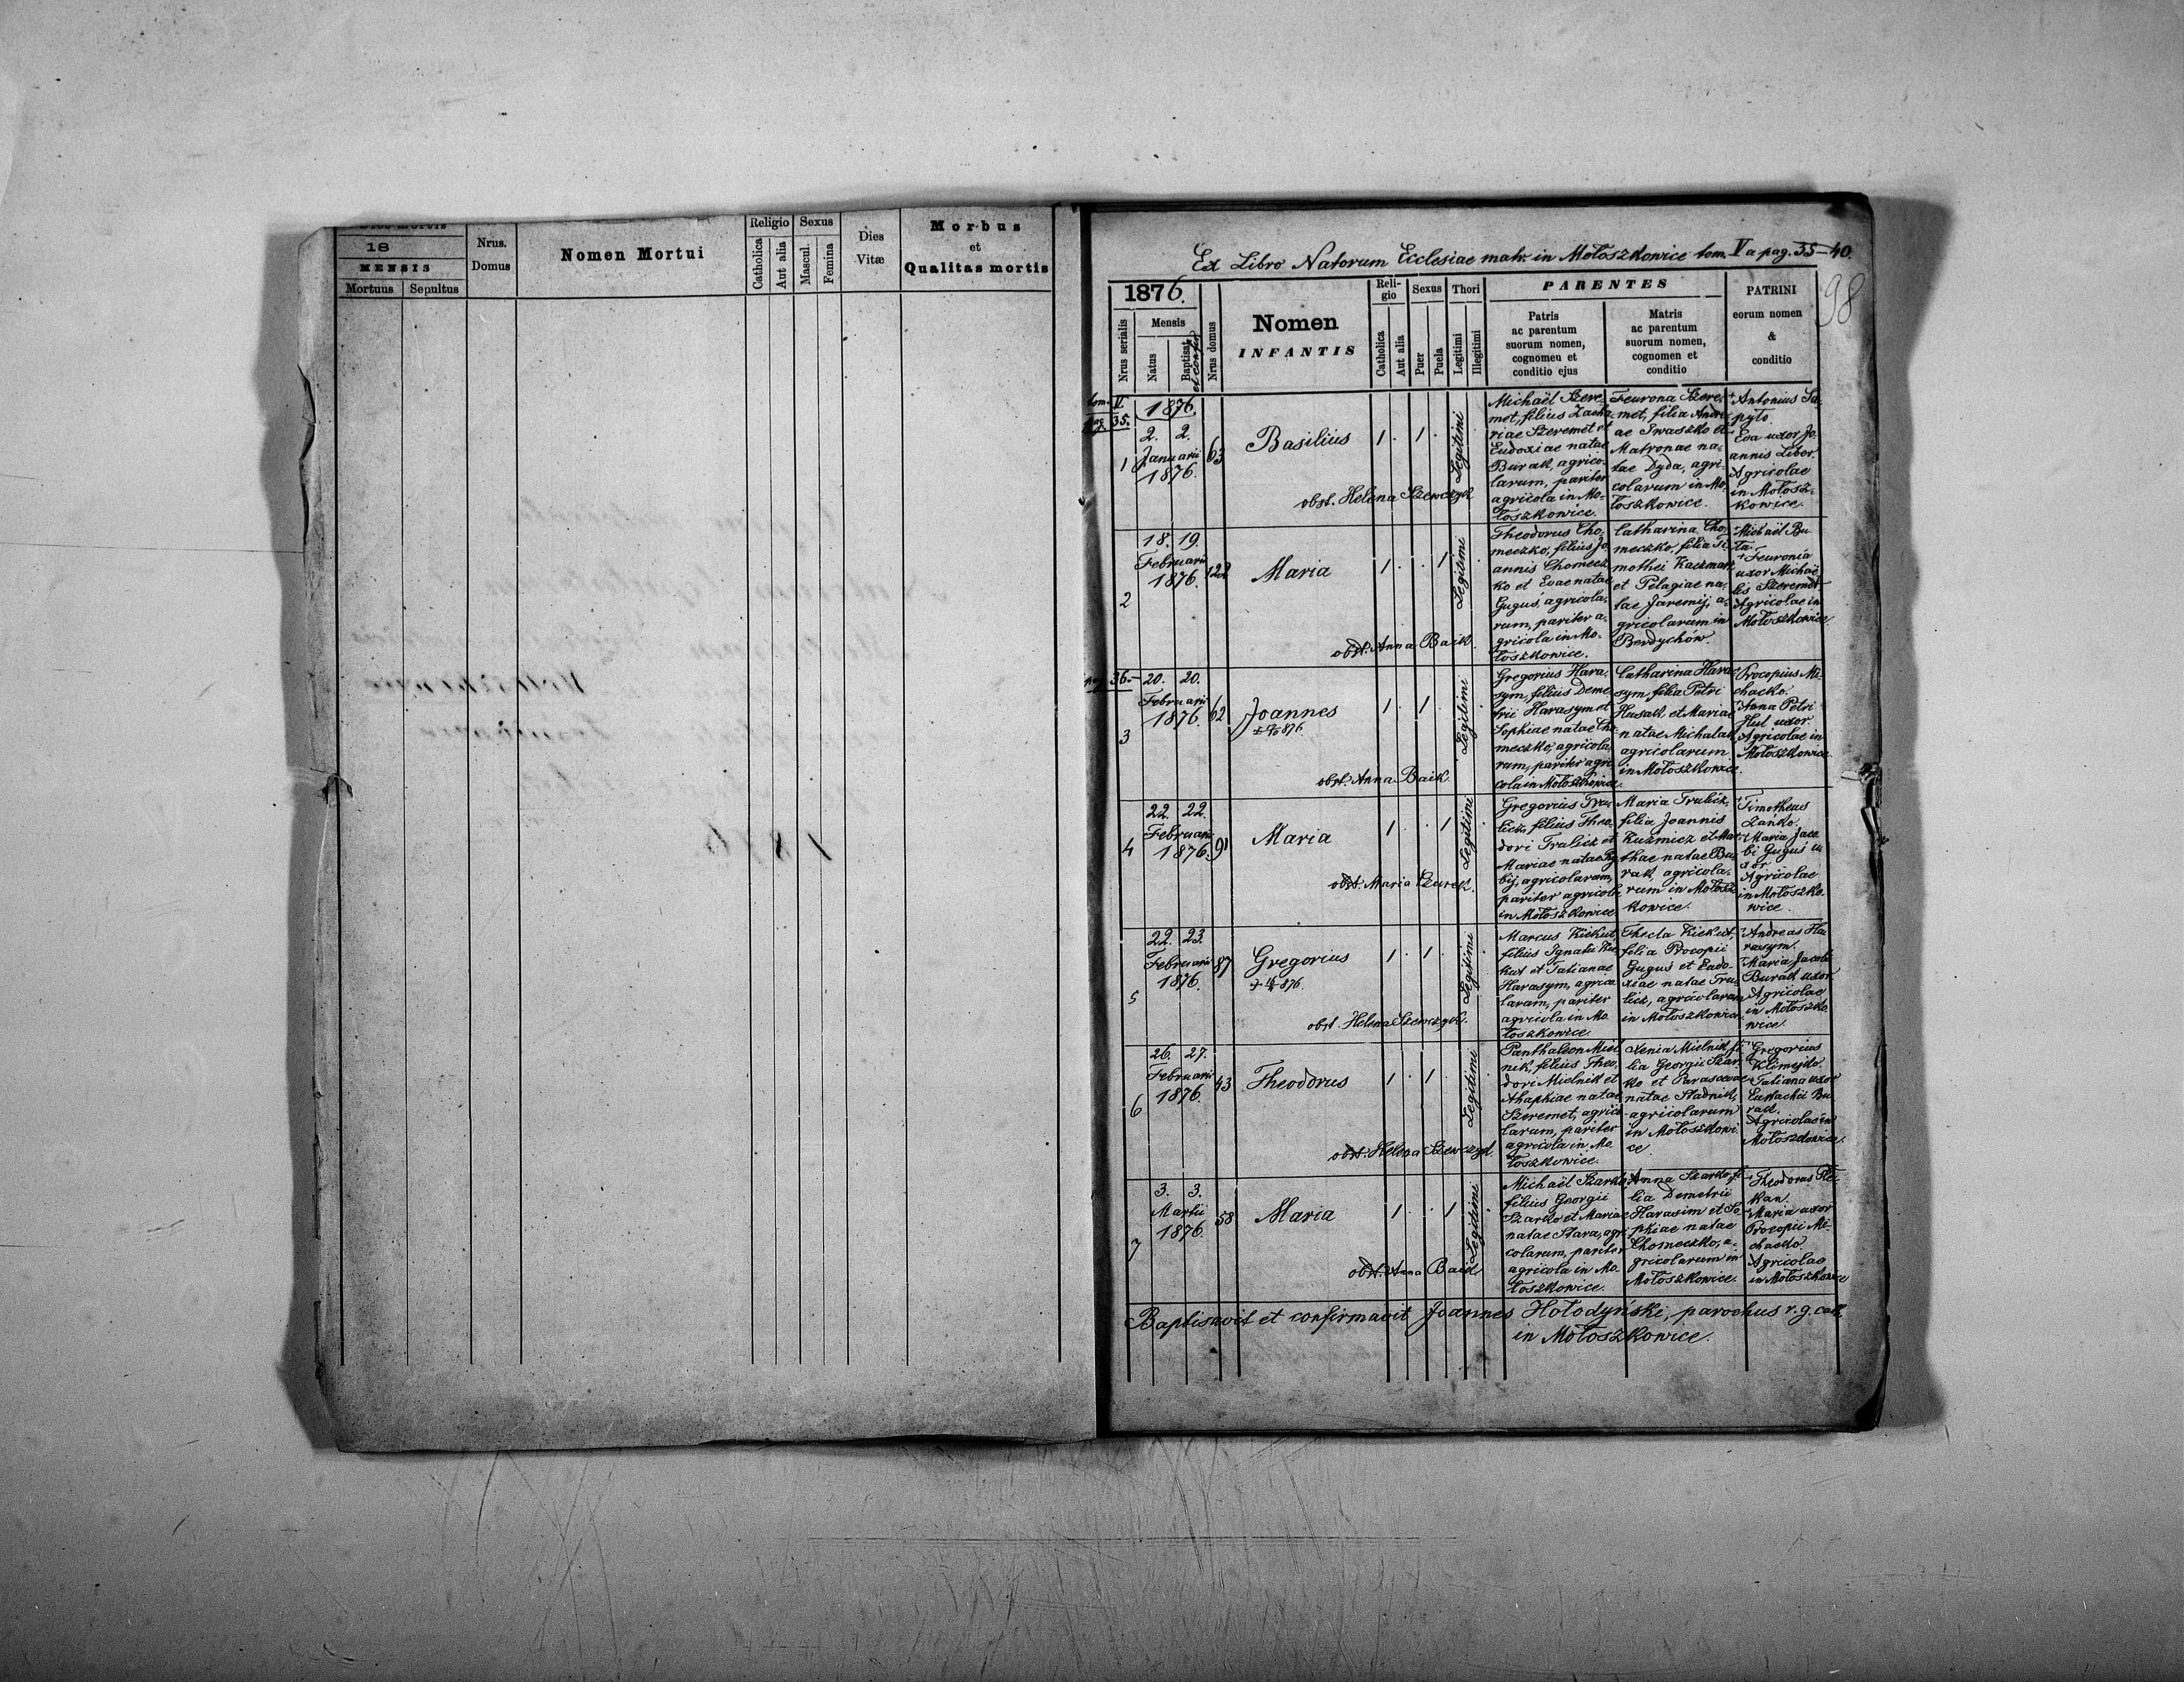 Dies mortis
18
MENSIS
Mortuus
Sepultus
Nrus.
Domus
Nomen Mortui
Religio
Catholica
Aut alia
Sexus
Mascul.
Femina
Dies
Vitæ
Morbus
et
Qualitas mortis
Ex Libro Natorum Ecclesiae matr. in Mołoszkowice tom. V a pag. 35–40.
98
1876.
Nrus serialis
Mensis
Natus
Baptisat.
et confir.
Nrus domus
Nomen
INFANTIS
Reli-
gio
Catholica
Aut alia
Sexus
Puer
Puela
Thori
Legitimi
Illegitimi
PARENTES
Patris
ac parentum
suorum nomen,
cognomen et
conditio ejus
Matris
ac parentum
suorum nomen,
cognomen et
conditio
PATRINI
eorum nomen
&
conditio
tom. V.
pag. 35.
1
1876.
2. 2.
Januarii
1876.
63
Basilius
1 . 1 .
Legitimi
obst. Helena Szewczyk
Michaël Szere-
met, filius Zacha-
riae Szeremet et
Eudoxiae natae
Burak, agrico-
larum, pariter
agricola in Mo-
łoszkowice.
Feurona Szere-
met, filia Andre-
ae Iwaszko et
Matronae na-
tae Dyda, agri-
colarum in Mo-
łoszkowice.
Antonius Sa-
pyto.
Eva uxor Jo-
annis Liber.
Agricolae
in Mołosz-
kowice.
2
18. 19.
Februarii
1876.
122
Maria
1 . . 1
Legitimi
obst. Anna Baik.
Theodorus Cho-
meczko, filius Jo-
annis Chomecz-
ko et Evae natae
Guguś, agricola-
rum, pariter a-
gricola in Mo-
łoszkowice.
Catharina Cho-
meczko, filia Ti-
mothei Kaczmar
et Pelagiae na-
tae Jaremij, a-
gricolarum in
Berdychów.
Michaël Bu-
ta.
Feuronia
uxor Michaë-
lis Szeremet
Agricolae in
Mołoszkowice.
pag. 36.
3
20. 20.
Februarii
1876.
62
Joannes
1 . 1 .
Legitimi
obst. Anna Baik.
Gregorius Hara-
sym, filius Deme-
trii Harasym et
Sophiae natae Cho-
meczko, agricola-
rum, pariter agri-
cola in Mołoszkowice.
Catharina Hara-
sym, filia Petri
Husak et Mariae
natae Michalak
agricolarum
in Mołoszkowice.
Procopius Mi-
chacko.
Anna Petri
Hul uxor.
Agricolae in
Mołoszkowice.
4
22. 22.
Februarii
1876.
91
Maria
1 . . 1
Legitimi
obst. Maria Szurek.
Gregorius Tru-
licz, filius Theo-
dori Trulicz et
Mariae natae
agricolarum,
pariter agricola
in Mołoszkowice
Maria Trulicz,
filia Joannis
Kuźmicz et Mar-
thae natae Bu-
rak, agricola-
rum in Mołosz-
kowice.
Timotheus
Zańko.
Maria Jaco-
bi Guguś u-
xor
Agricolae
in Mołoszko-
wice.
5
22. 23.
Februarii
1876.
87
Gregorius
1 . 1 .
Legitimi
obst. Helena Szewczyk.
Marcus Kiekut,
filius Ignatii Kie-
kut et Tatianae
Harasym, agrico-
larum, pariter
agricola in Mo-
łoszkowice.
Thecla Kiekut,
filia Procopii
Guguś et Eudo-
xiae natae Tru-
licz, agricolarum
in Mołoszkowice.
Andreas Ha-
rasym.
Maria Jacobi
Burak uxor
Agricolae
in Mołoszko-
wice.
6
26. 27.
Februarii
1876.
43
Theodorus
1 . 1 .
Legitimi
obst. Helena Szewczyk.
Panthaleon Miel-
nik, filius Theo-
dori Mielnik et
Ahaphiae natae
Szeremet, agrico-
larum, pariter
agricola in Mo-
łoszkowice.
Xenia Mielnik, fi-
lia Georgii Szar-
ko et Parascevae
natae Stadnik,
agricolarum
in Mołoszkowi-
ce.
Gregorius
Klimejko.
Tatiana uxor
Eustachii Bu-
rak.
Agricolae in
Mołoszkowice.
7
3. 3.
Martii
1876.
58
Maria
1 . . 1
Legitimi
obst. Anna Baik
Michaël Szarko,
filius Georgii
Szarko et Mariae
natae Stara, agri-
colarum, pariter
agricola in Mo-
łoszkowice.
Anna Szarko, fi-
lia Demetrii
Harasim et So-
phiae natae
Chomeczko, a-
gricolarum in
Mołoszkowice.
Theodorus Ple-
kan.
Maria uxor
Procopii Mi-
chacko.
Agricolae
in Mołoszkowice
Baptisavit et confirmavit Joannes Hołodyński, parochus r. g. cath.
in Mołoszkowice.